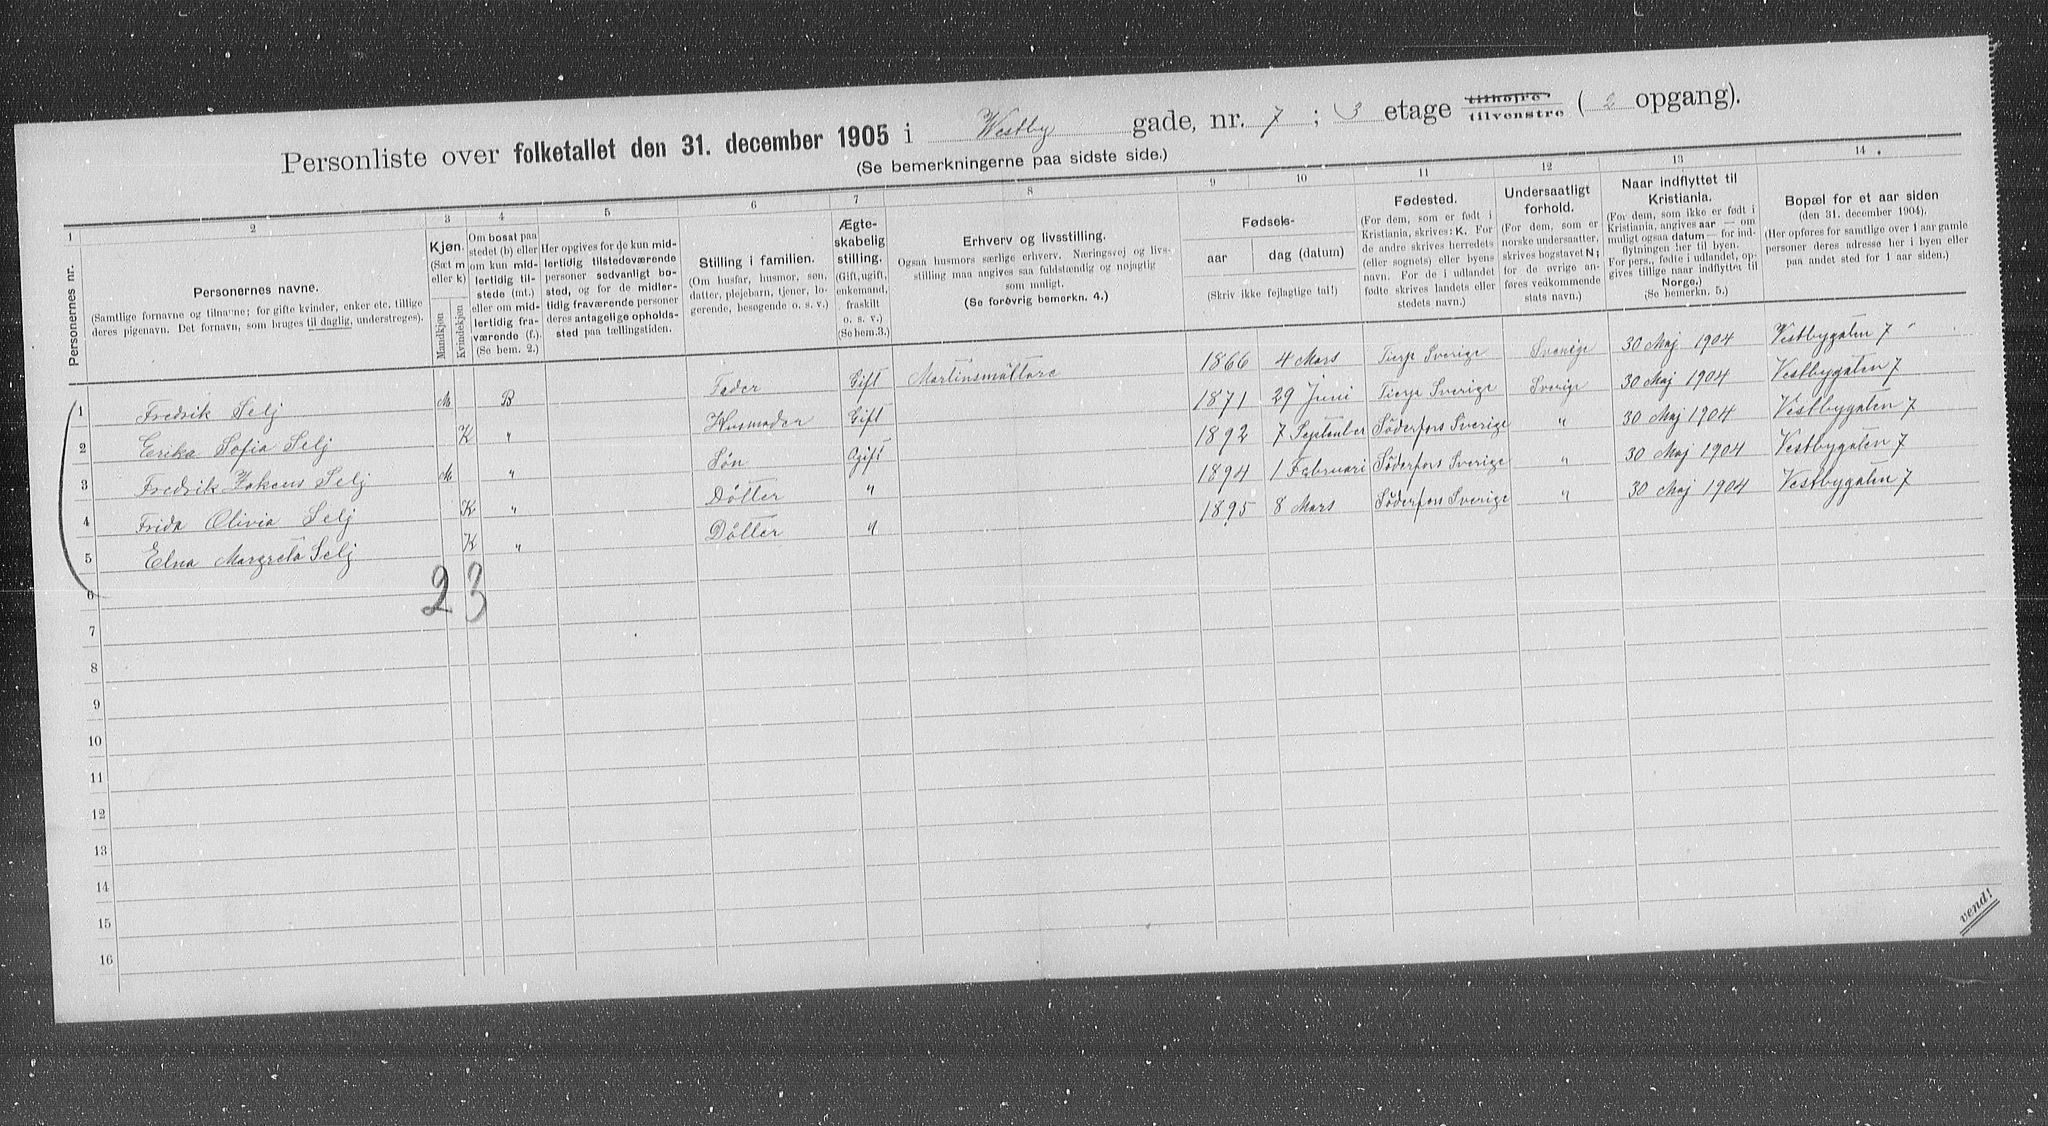 Personliste over folketallet den 31. december 1905 i Westby gade, nr. 7 ; 3 etage tilhøjre tilvenstre ( 2 opgang).
(Se bemerkningerne paa sidste side.)
1 2 3 4 5 6 7 8 9 10 11 12 13 14
Personernes nr.
Personernes navne.
(Samtlige fornavne og tilnavne; for gifte kvinder, enker etc. tillige
deres pigenavn. Det fornavn, som bruges til daglig, understreges).
Kjøn.
(Sæt m
eller k)
Mandkjøn
Kvindekjøn
Om bosat paa
stedet (b) eller
om kun mid-
lertidig til-
stede (mt.)
eller om mid-
lertidig fra-
værende (f.)
(Se bem. 2.)
Her opgives for de kun mid-
lertidig tilstedeværende
personer sedvanligt bo-
sted, og for de midler-
tidig fraværende personer
deres antagelige opholds-
sted paa tællingstiden.
Stilling i familien.
(Om husfar, husmor, søn,
datter, plejebarn, tjener, lo-
gerende, besøgende o. s. v.)
Ægte-
skabelig
stilling.
(Gift, ugift,
enkemand,
fraskilt
o. s. v.)
(Se bem.3.)
Erhverv og livsstilling.
Ogsaa husmors særlige erhverv. Næringsvej og livs-
stilling maa angives saa fuldstændig og nøjagtig
som muligt.
(Se forøvrig bemerkn. 4.)
Fødsels-
aar
dag (datum)
(Skriv ikke fejlagtige tal!)
Fødested.
(For dem, som er født i
Kristiania, skrives: K. For
de andre skrives herredets
(eller sognets) eller byens
navn. For de i udlandet
fødte skrives landets eller
stedets navn.)
Undersaatligt
forhold.
(For dem, som er
norske undersaatter,
skrives bogstavet N;
for de øvrige an-
føres vedkommende
stats navn.)
Naar indflyttet til
Kristiania.
(For dem, som ikke er født i
Kristiania, angives aar — om
muligt ogsaa datum — for ind-
flytningen her til byen.
For pers., fødte i udlandet, op-
gives tillige naar indflyttet til
Norge.)
(Se bemerkn. 5.)
Bopæl for et aar siden
(den 31. december 1904).
(Her opføres for samtlige over 1 aar gamle
personer deres adresse her i byen eller
paa andet sted for 1 aar siden.)
1 Fredrik Selj M B Fader Gift 1866 4 Mars Tierp Sverige Sverige 30 Maj 1904 Vestbygaten 7
2 Erika Sofia Selj K " Husmoder Gift 1871 29 Juni Tierp Sverige Sverige 30 Maj 1904 Vestbygaten 7
3 Fredrik Hakens Selj M " Søn Ogift 1892 7 September Söderfors Sverige " 30 Maj 1904 Vestbygaten 7
4 Frida Olivia Selj K " Døtter " 1894 1 Februari Söderfors Sverige " 30 Maj 1904 Vestbygaten 7
5 Elna Margreta Selj K " Døtter " 1895 8 Mars Söderfors Sverige " 30 Maj 1904 Vestbygaten 7
6 2 3
7
8
9
10
11
12
13
14
15
16
vend!